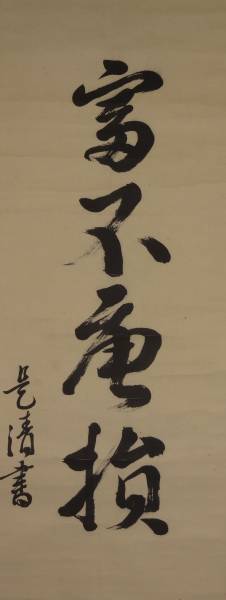 富不損
是清書